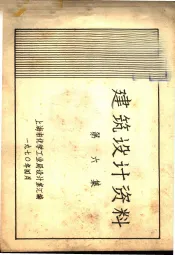 建筑设计资料
第六集
上海市化学工业局设计室汇编
一九七〇年四月